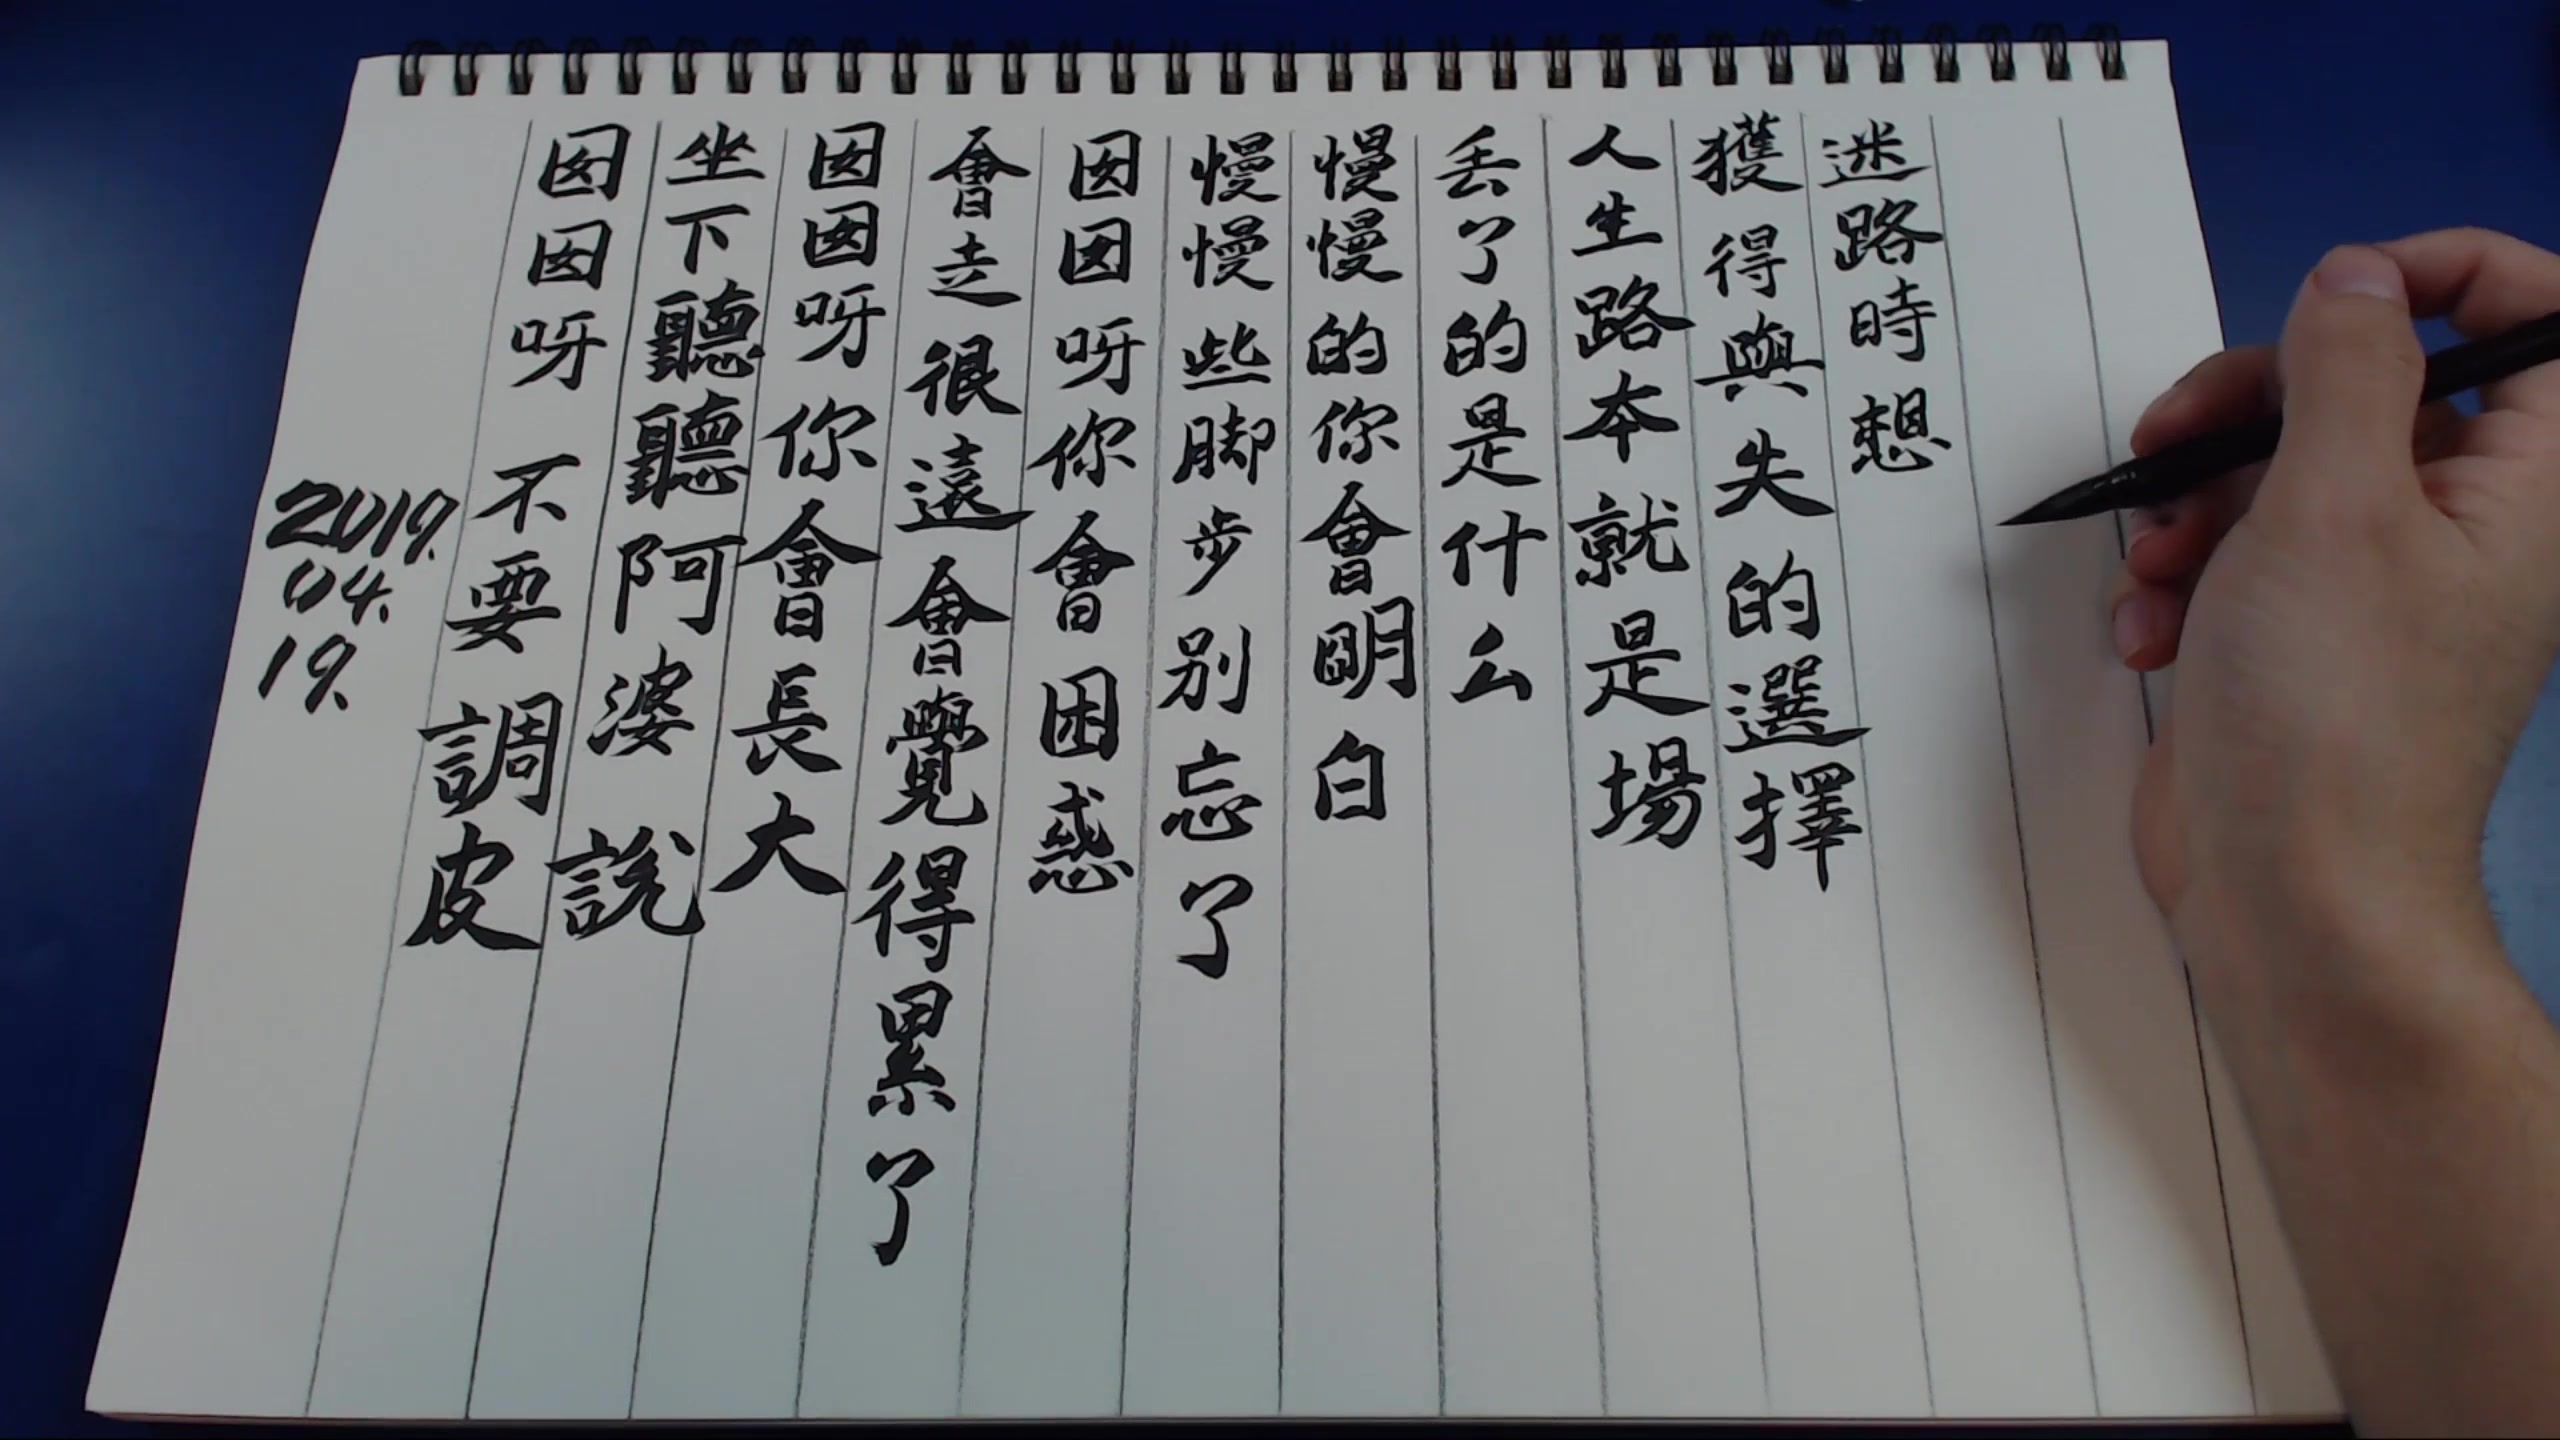 2019.
04.
19.
囡囡呀不要調皮
坐下聽聽阿婆說
囡囡呀你會長大
會走很遠會覺得累了
囡囡呀你會困惑
慢慢些脚步别忘了
慢慢的你會明白
丢了的是什么
人生路本就是場
獲得與失的選擇
迷路時想